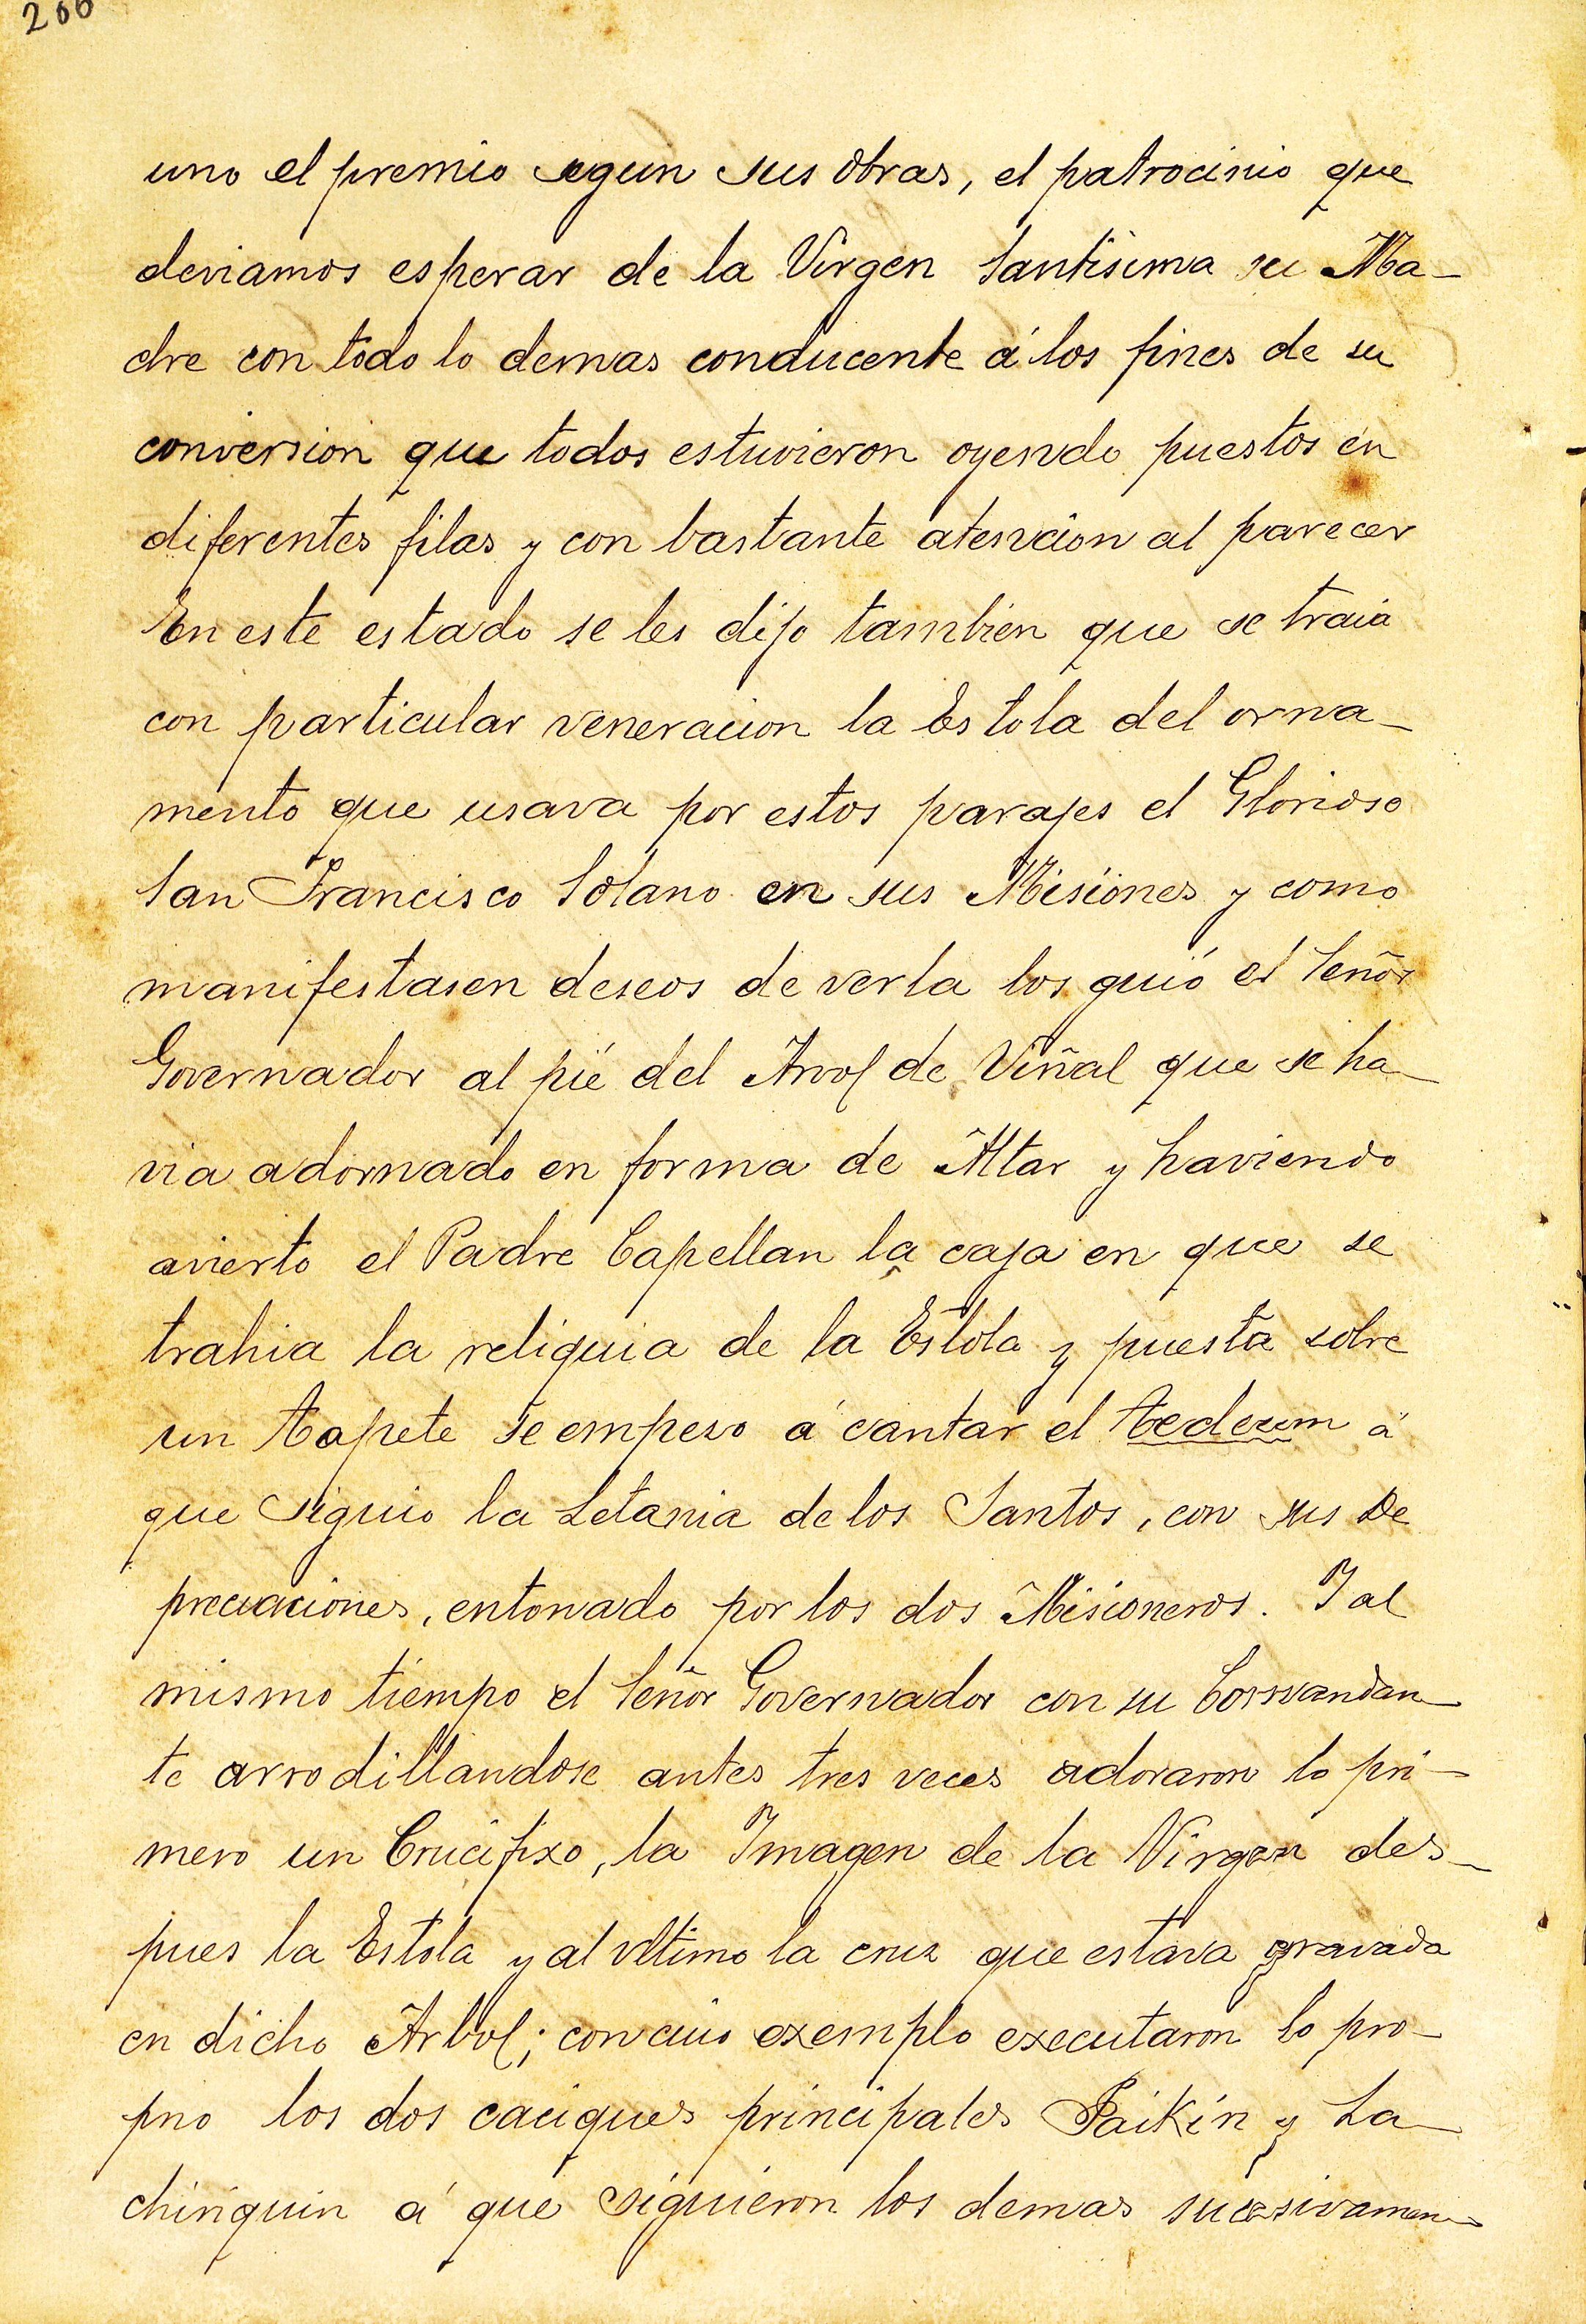 266
uno el premio segun sus obras, el patrocinio que
deviamos esperar de la Virgen Santisima su Ma-
dre con todo lo demas conducente á los fines de su
conversion que todos estuvieron oyendo puestos en
diferentes filas y con bastante atencion al parecer
En este estado se les dijo tambien que se traia
con particular veneracion la Estola del orna-
mento que usava por estos parajes el Glorioso
San Francisco Solano en sus Misiones y como
manifestasen deseos de verla los guió el Señor
Governador al pié del Arvol de Viñal que se ha-
via adornado en forma de Altar y haviendo
avierto el Padre Capellan la caja en que se
trahia la reliquia de la Estola y puesta sobre
un tapete se empezo á cantar el tedeum á
que siguio la Letania de los Santos, con sus De
precaciones, entonado por los dos Misioneros. I al
mismo tiempo el Señor Governador con su Comandan-
te arrodillandose antes tres veces adoraron lo pri-
mero un Crucifixo, la Imagen de la Virgen des-
pues la Estola y al vltimo la cruz que estava gravada
en dicho Arbol; con cuio exemplo executaron lo pro-
prio los dos caciques principales Paikin y La-
chiriquin á que siguieron los demas sucesivamen-